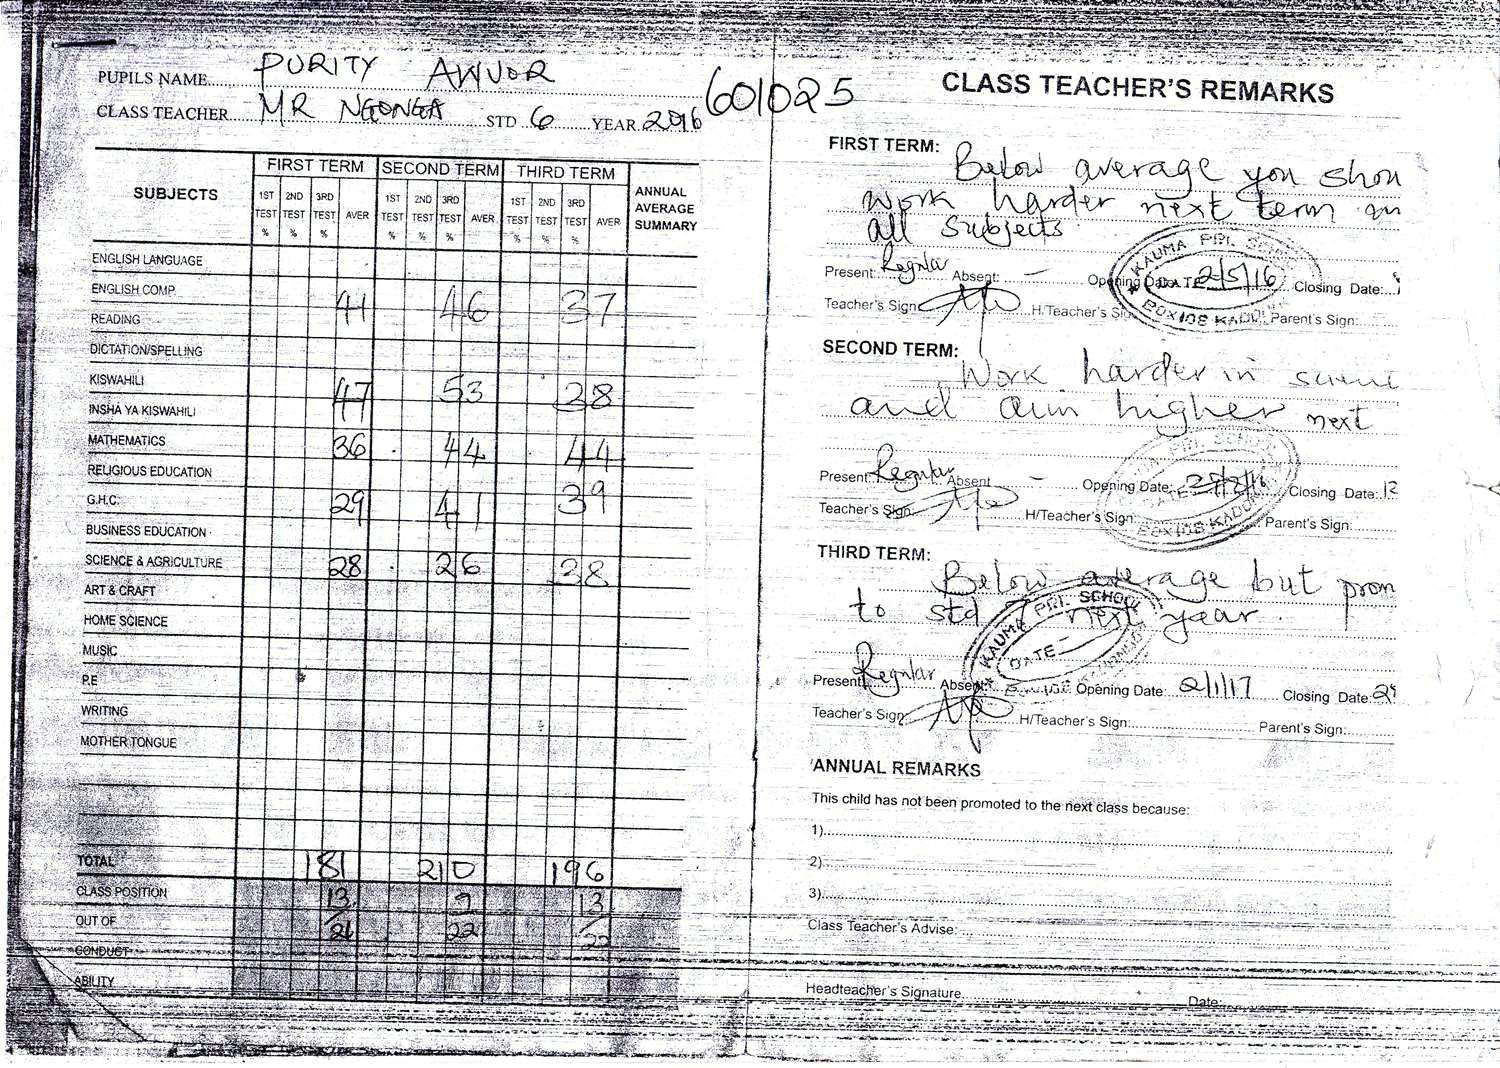 PUPILS NAME PURITY AWUOR
CLASS TEACHER MR NGONGA STD 6 YEAR 2016
601025
SUBJECTS FIRST TERM SECOND TERM THIRD TERM ANNUAL AVERAGE SUMMARY
1ST TEST % 2ND TEST % 3RD TEST % AVER 1ST TEST % 2ND TEST % 3RD TEST % AVER 1ST TEST % 2ND TEST % 3RD TEST % AVER
ENGLISH LANGUAGE
ENGLISH COMP. 41 46 37
READING
DICTATION/SPELLING
KISWAHILI 47 53 38
INSHA YA KISWAHILI
MATHEMATICS 36 44 44
RELIGIOUS EDUCATION
G.H.C. 29 41 39
BUSINESS EDUCATION
SCIENCE & AGRICULTURE 28 26 38
ART & CRAFT
HOME SCIENCE
MUSIC
P.E
WRITING
MOTHER TONGUE
TOTAL 181 210 196
CLASS POSITION 13 9 13
OUT OF 21 22 22
CONDUCT
ABILITY
CLASS TEACHER'S REMARKS
FIRST TERM: Below average you shou
work harder next term in
all subjects
KAUMA PRI. SCHOOL
Present: Regular Absent: – Opening Date: 2/5/16 Closing Date:
Teacher's Sign: H/Teacher's Sign Parent's Sign:
BOX 108 KADO
SECOND TERM:
Work harder in scienc
and aim higher next
PRI. SCHOOL
Present: Regular Absent – Opening Date: Closing Date: 12
Teacher's Sign: H/Teacher's Sign: Parent's Sign:
BOX 108 KADO
THIRD TERM:
Below average but prom
to std 7 next year.
KAUMA PRI. SCHOOL
DATE
Present: Regular Absent: Opening Date: 2/1/17 Closing Date: 29
Teacher's Sign: H/Teacher's Sign: Parent's Sign:
ANNUAL REMARKS
This child has not been promoted to the next class because:
1)
2)
3)
Class Teacher's Advise:
Headteacher's Signature Date: